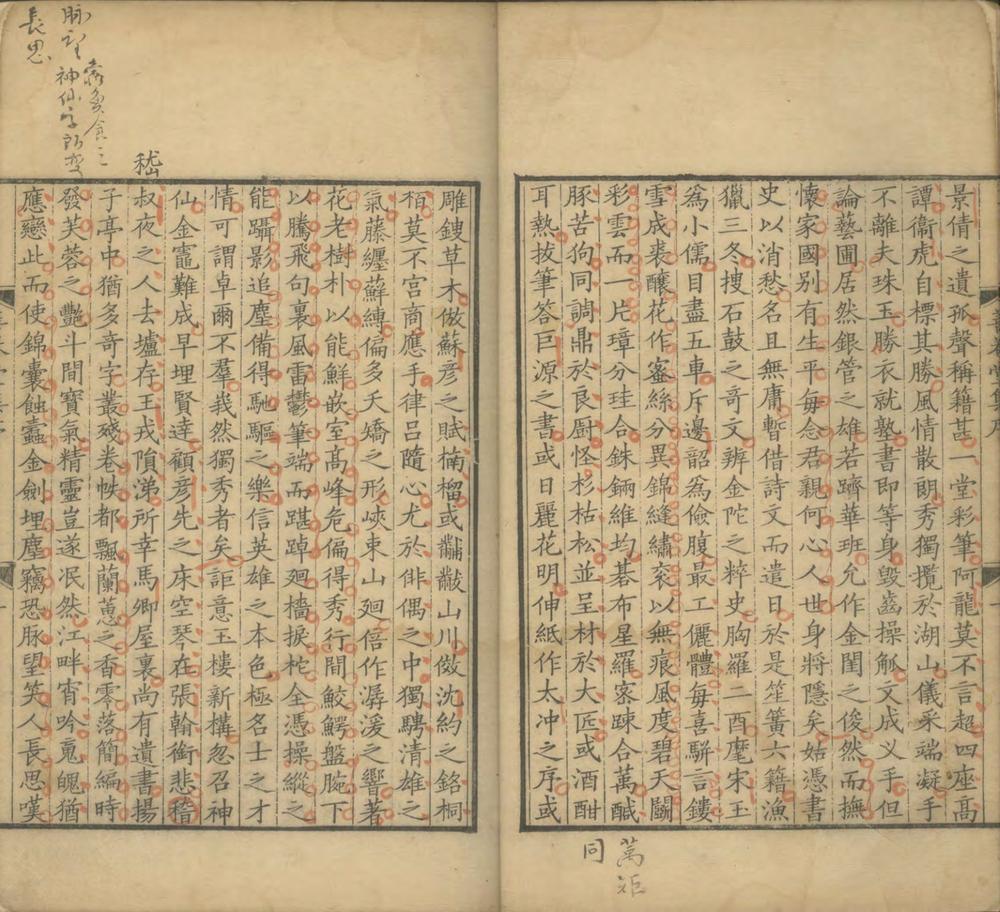 景倩之遺孤聲稱籍甚一堂彩筆阿龍莫不言超四座高
譚衞虎自標其勝風情散朗秀獨攬於湖山儀采端凝手
不離夫珠玉勝衣就塾書即等身毁齒操觚文成义手但
論藝圃居然銀管之雄若躋華班允作金閨之俊然而撫
懷家國别有生平每念君親何心人世身將隱矣姑憑書
史以消愁名且無庸暫借詩文而遣日於是笙簧六籍漁
獵三冬搜石鼓之哥文辨金陀之粹史胸羅二酉麾宋玉
爲小儒目盡五車斥邊韶爲儉腹最工儷體每喜騈言鏤
雪成裘釀花作蜜絲分異錦縫繡衮以無痕風度碧天關
彩雲而一片璋分珪合銖錙維均碁布星羅宻踈合萬醎
豚苦狗同調鼎於良㕑怪杉枯松並呈材於大匠或酒酣
耳熱拔筆答巨源之書或日麗花明伸紙作太冲之序或
萬矩
同
雕鎪草木倣蘇彦之賦楠榴或黼黻山川倣沈約之銘桐
栢莫不宫商應手律吕隨心尤於俳偶之中獨騁清雄之
氣藤纒蘚縛偏多夭嬌之形峽束山廻倍作潺湲之響著
花老樹朴以能鮮嵌室髙峰危偏得秀行間鮫鰐盤腕下
以騰飛句裏風雷鬱筆端而踸踔廻檣捩柁全憑操縱之
能躡影追塵備得馳驅之樂信英雄之本色極名士之才
情可謂卓爾不羣峩然獨秀者矣詎意玉樓新構忽召神
仙金竈難成早埋賢逹顧彦先之床空琴在張翰衘悲稽
叔夜之人去壚存王戎隕涕所幸馬卿屋裏尚有遺書揚
子亭中猶多奇字叢殘卷帙都飄蘭蕙之香零落簡編時
發芙蓉之艷斗間寶氣精靈豈遂泯然江畔宵吟䰟魄猶
應戀此而使錦囊蝕蠹金劍埋塵竊恐脉望笑人長思嘆
嵇
脉望
蠹魚食之
神仙字所変
長恩